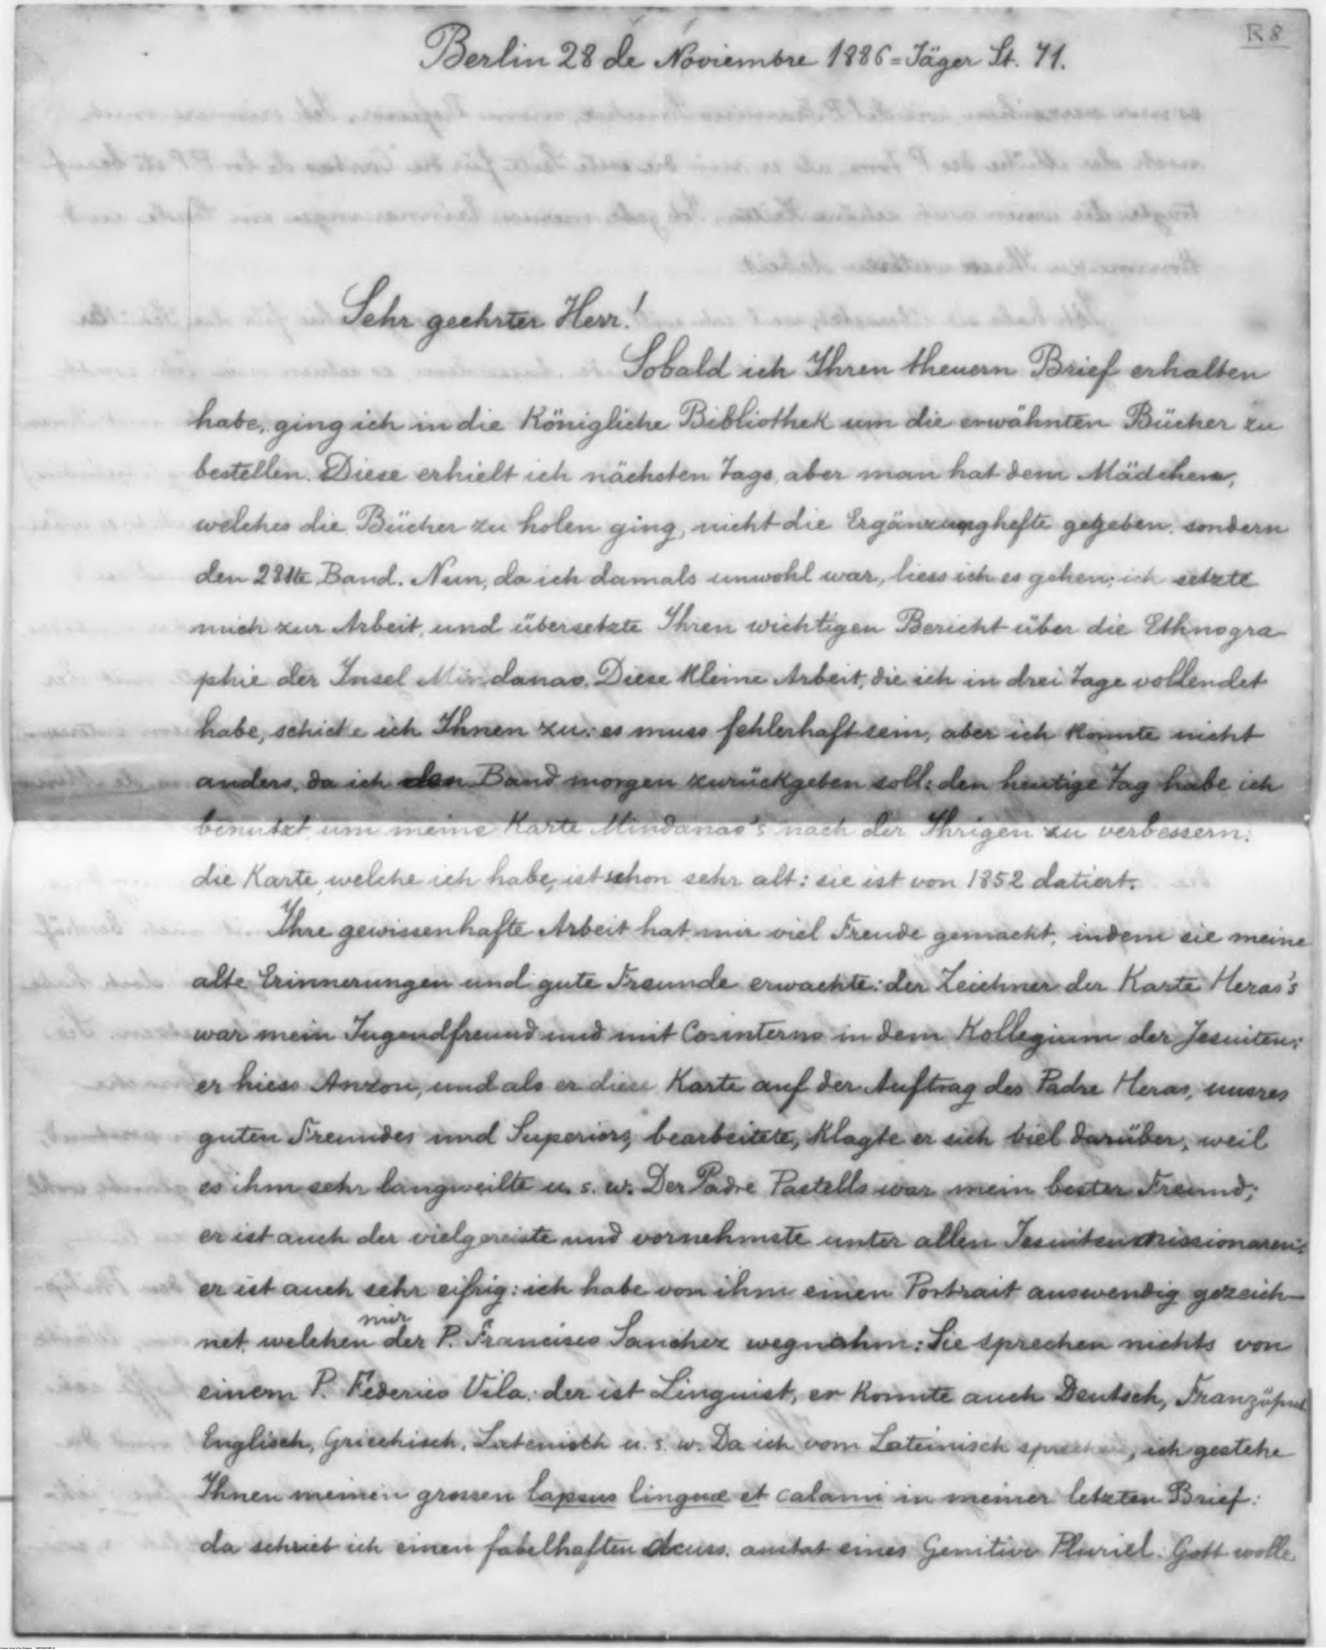 R 8
Berlin 28 de Noviembre 1886 = Jäger St. 71.
Sehr geehrter Herr!
Sobald ich Ihren theuern Brief erhalten
habe, ging ich in die Königliche Bibliothek um die erwähnten Bücher zu
bestellen. Diese erhielt ich nächsten Tags, aber man hat dem Mädchen,
welches die Bücher zu holen ging, nicht die Ergänzunghefte gegeben, sondern
den 28te Band. Nun, da ich damals unwohl war, liess ich es gehen; ich setzte
mich zur Arbeit, und übersetzte Ihren wichtigen Bericht über die Ethnogra-
phie der Insel Mindanao. Diese kleine Arbeit, die ich in drei Tage vollendet
habe, schicke ich Ihnen zu: es muss fehlerhaft sein, aber ich konnte nicht
anders, da ich den Band morgen zurückgeben soll: den heutige Tag habe ich
benutzt um meine Karte Mindanao's nach der Ihrigen zu verbessern:
die Karte, welche ich habe, ist schon sehr alt: sie ist von 1852 datiert.
Ihre gewissenhafte Arbeit hat mir viel Freude gemackt, indem sie meine
alte Erinnerungen und gute Freunde erwachte: der Zeichner der Karte Heras's
war mein Jugendfreund und mit Cointerno in dem Kollegium der Jesuiten;
er hiess Anzon, und als er diese Karte auf der Auftrag des Padre Heras, unsres
guten Freundes und Superiors, bearbeitete, klagte er sich viel darüber, weil
es ihm sehr langweilte u. s. w. Der Padre Pastells war mein bester Freund;
er ist auch der vielgereiste und vornehmste unter allen Jesuitenmissionaren;
er ist auch sehr eifrig: ich habe von ihm einen Portrait auswendig gezeich-
net welchen mir der P. Francisco Sanchez wegnahm: Sie sprechen nichts von
einem P. Federico Vila: der ist Linguist, er konnte auch Deutsch,
Englisch, Griechisch, Lateinisch u. s. w. Da ich vom Lateinisch spreche, ich gestehe
Ihnen meinen grossen lapsus linguæ et calami in meiner letzten Brief:
da schrieb ich einen fabelhaften anstat eines Genitivo Pluriel. Gott wolle